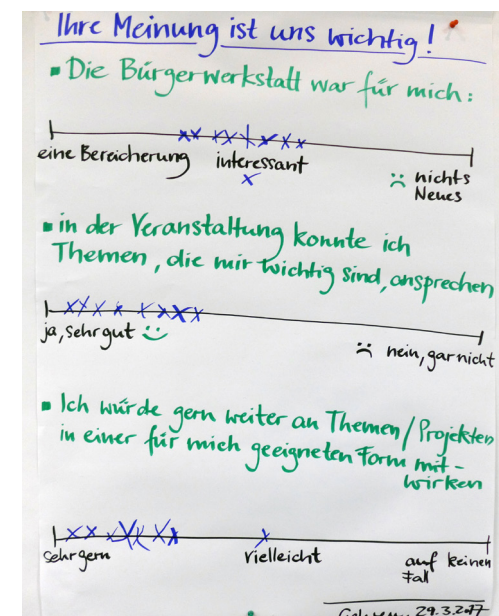 Ihre Meinung ist uns wichtig!
▪ Die Bürgerwerkstatt war für mich:
eine Bereicherung interessant nichts
Neues
▪ in der Veranstaltung konnte ich
Themen, die mir wichtig sind, ansprechen
ja, sehr gut nein, gar nicht
▪ Ich würde gern weiter an Themen/Projekten
in einer für mich geeigneten Form mit-
wirken
sehr gern vielleicht auf keinen
Fall
29.3.2017